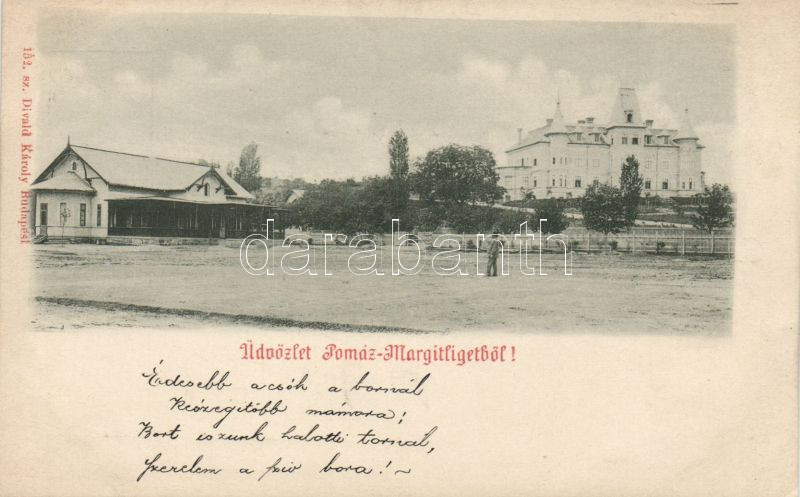 152. sz. Divald Károly Budapest
darabanth
Üdvözlet Pomáz-Margitligetből!
Édesebb a csók a bornál
mámora;
Bort iszunk halotti tornál,
Szerelem a szív bora!